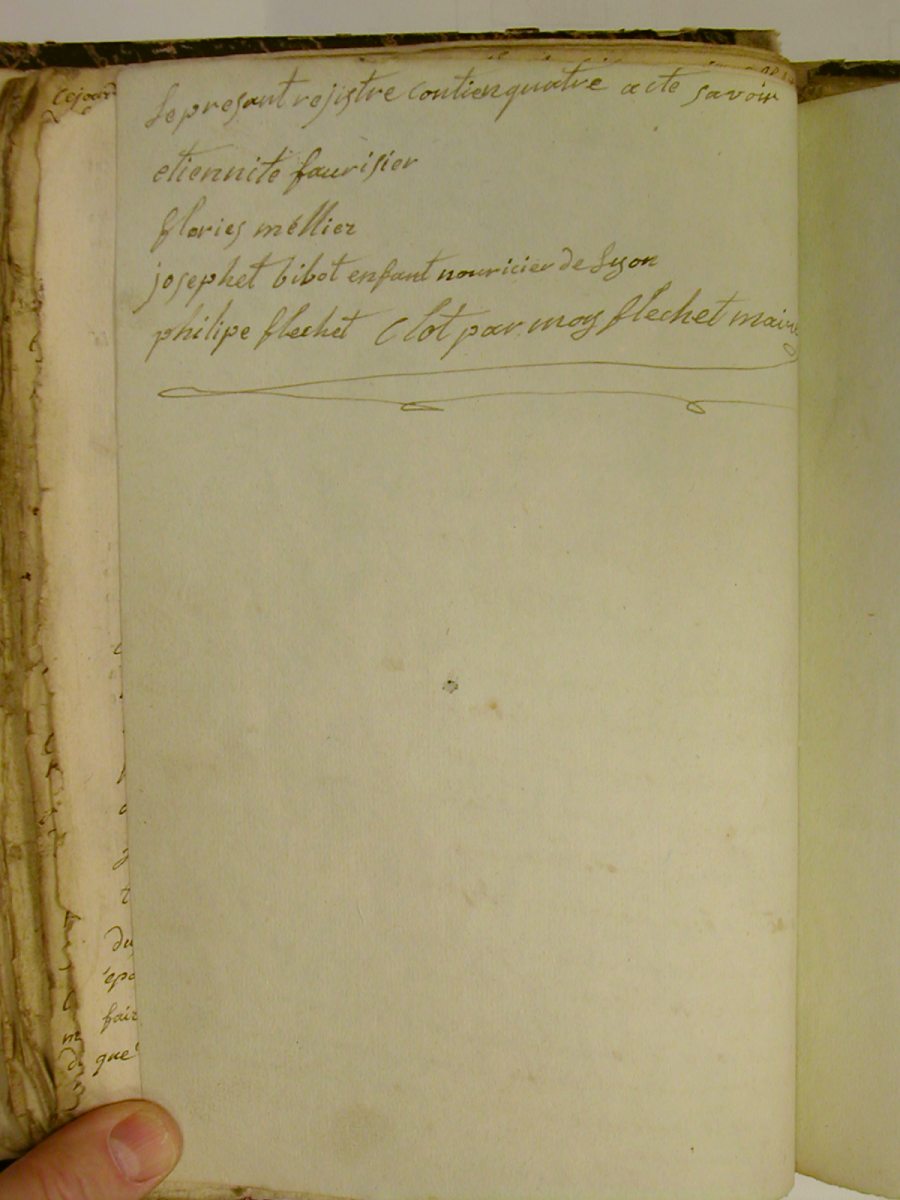 cejour
Le presant rejistre contien quatre acte savoir
etiennite faurisier
flories mellier
josephet bibot enfant nouricier de Lyon
philipe flechet Clot par moy flechet maire
du
épo
fair
que